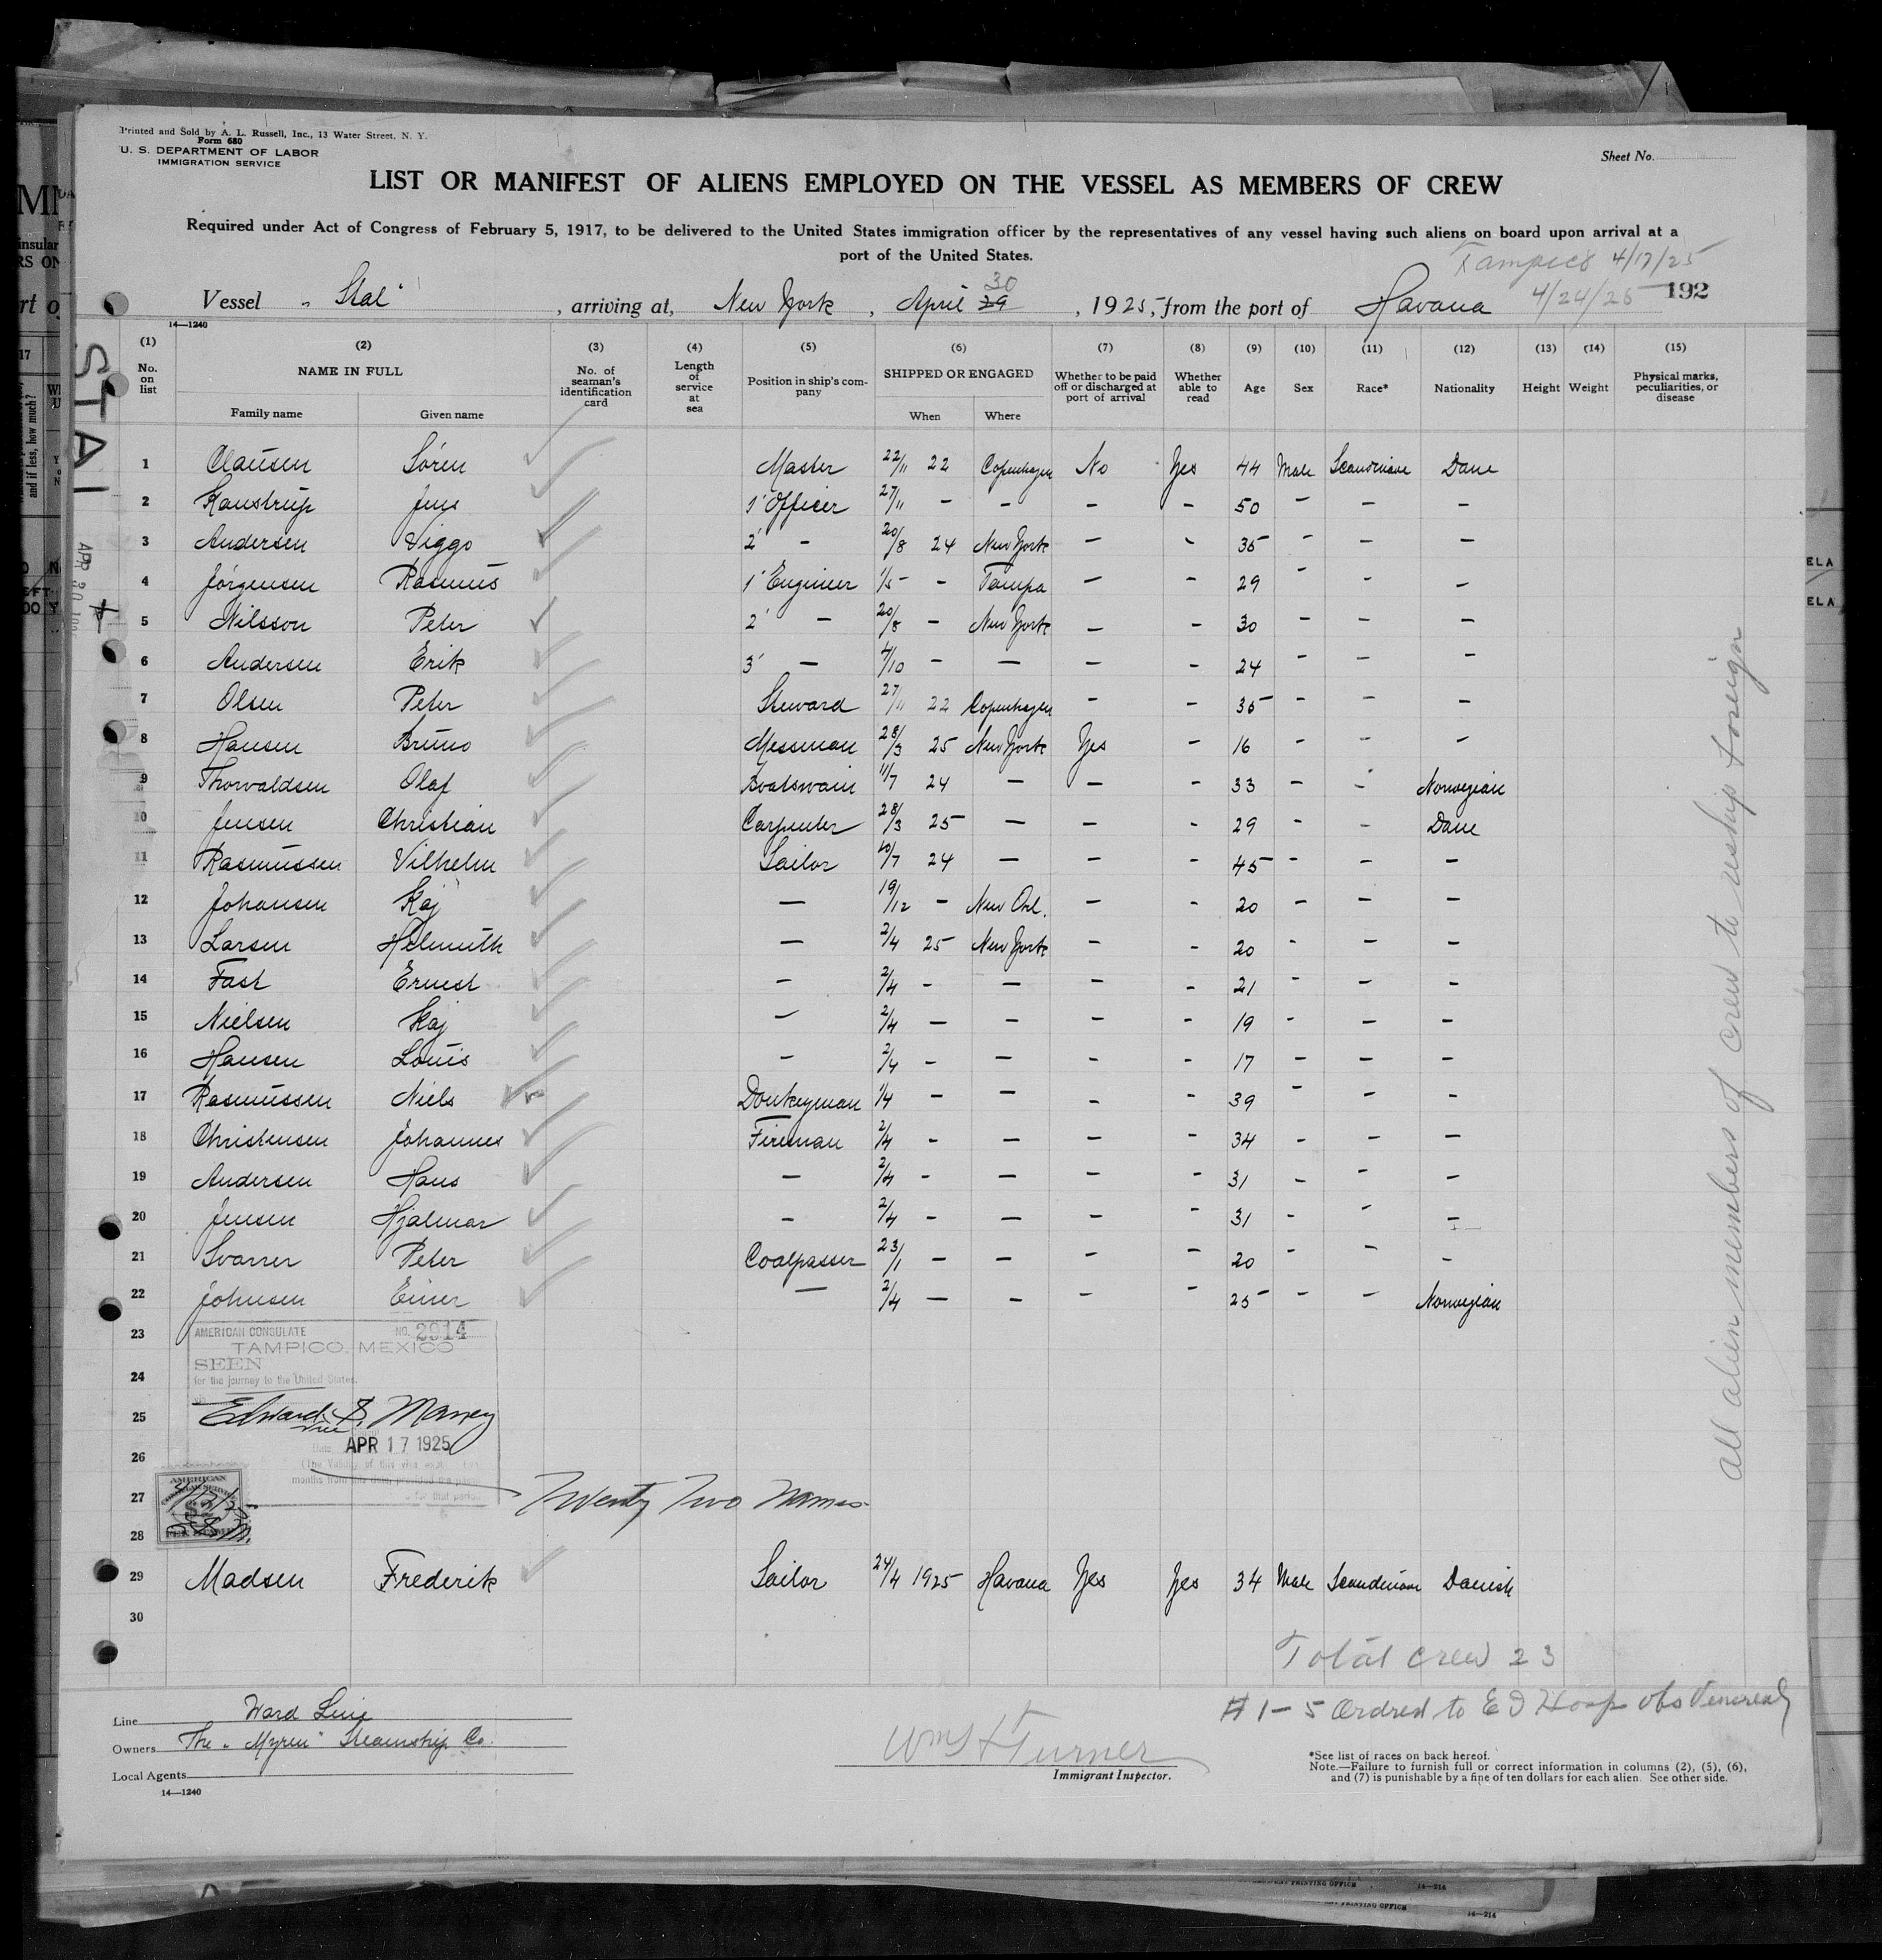 Printed and Sold by A. L. Russell, Inc., 13 Water Street, N. Y.
Form 680
U. S. DEPARTMENT OF LABOR
IMMIGRATION SERVICE
Sheet No.
LIST OR MANIFEST OF ALIENS EMPLOYED ON THE VESSEL AS MEMBERS OF CREW
Required under Act of Congress of February 5, 1917, to be delivered to the United States immigration officer by the representatives of any vessel having such aliens on board upon arrival at a
port of the United States.
Tampico 4/17/25
Vessel "Stal", arriving at, New York, April 29 30, 1925, from the port of Havana 4/24/25 192
14—1240
(1) No. on list
(2) NAME IN FULL Family name Given name
(3) No. of seaman's identification card
(4) Length of service at sea
(5) Position in ship's company
(6) SHIPPED OR ENGAGED When Where
(7) Whether to be paid off or discharged at port of arrival
(8) Whether able to read
(9) Age
(10) Sex
(11) Race*
(12) Nationality
(13) Height
(14) Weight
(15) Physical marks, peculiarities, or disease
STAL
1 Clausen Sören Master 22/11 22 Copenhagen No Yes 44 Male Scandinav Dane
2 Kanstrup Jens 1' Officer 27/11 - - - - 50 - - -
3 Andersen Viggo 2' - 20/8 24 New York - - 35 - - -
4 Jörgensen Rasmus 1' Engineer 1/5 - Tampa - - 29 - - -
5 Nilsson Peter 2' - 20/8 - New York - - 30 - - -
6 Andersen Erik 3' - 4/10 - - - - 24 - - -
7 Olsen Peter Steward 27/11 22 Copenhagen - - 35 - - -
8 Hansen Bruno Messman 28/3 25 New York Yes - 16 - - -
9 Thorvaldsen Olaf Boatswain 11/7 24 - - - 33 - - Norwegian
10 Jensen Christian Carpenter 28/3 25 - - - 29 - - Dane
11 Rasmussen Vilhelm Sailor 10/7 24 - - - 45 - - -
12 Johansen Kaj - 19/12 - New Orl. - - 20 - - -
13 Larsen Helmuth - 2/4 25 New York - - 20 - - -
14 Fast Ernest - 2/4 - - - - 21 - - -
15 Nielsen Kaj - 2/4 - - - - 19 - - -
16 Hansen Louis - 2/4 - - - - 17 - - -
17 Rasmussen Niels Donkeyman 1/4 - - - - 39 - - -
18 Christensen Johannes Fireman 2/4 - - - - 34 - - -
19 Andersen Hans - 2/4 - - - - 31 - - -
20 Jensen Hjalmar - 2/4 - - - - 31 - - -
21 Svarrer Peter Coalpasser 23/1 - - - - 20 - - -
22 Johnsen Einer - 2/4 - - - - 25 - - Norwegian
23
24
25
26
27
28
AMERICAN CONSULATE NO. 2914
TAMPICO, MEXICO
SEEN
for the journey to the United States.
Edward S. Maney
Vice
APR 17 1925
Twenty Two Names
29 Madsen Frederik Sailor 24/4 1925 Havana Yes Yes 34 Male Scandinav Danish
30
All alien members of crew to reship foreign
Total crew 23
# 1-5 Ordred to E I Hosp obs Venereal
Line Ward Line
Owners The "Myren" Steamship Co.
Local Agents
14—1240
Wm H Turner
Immigrant Inspector.
*See list of races on back hereof.
Note.—Failure to furnish full or correct information in columns (2), (5), (6),
and (7) is punishable by a fine of ten dollars for each alien. See other side.